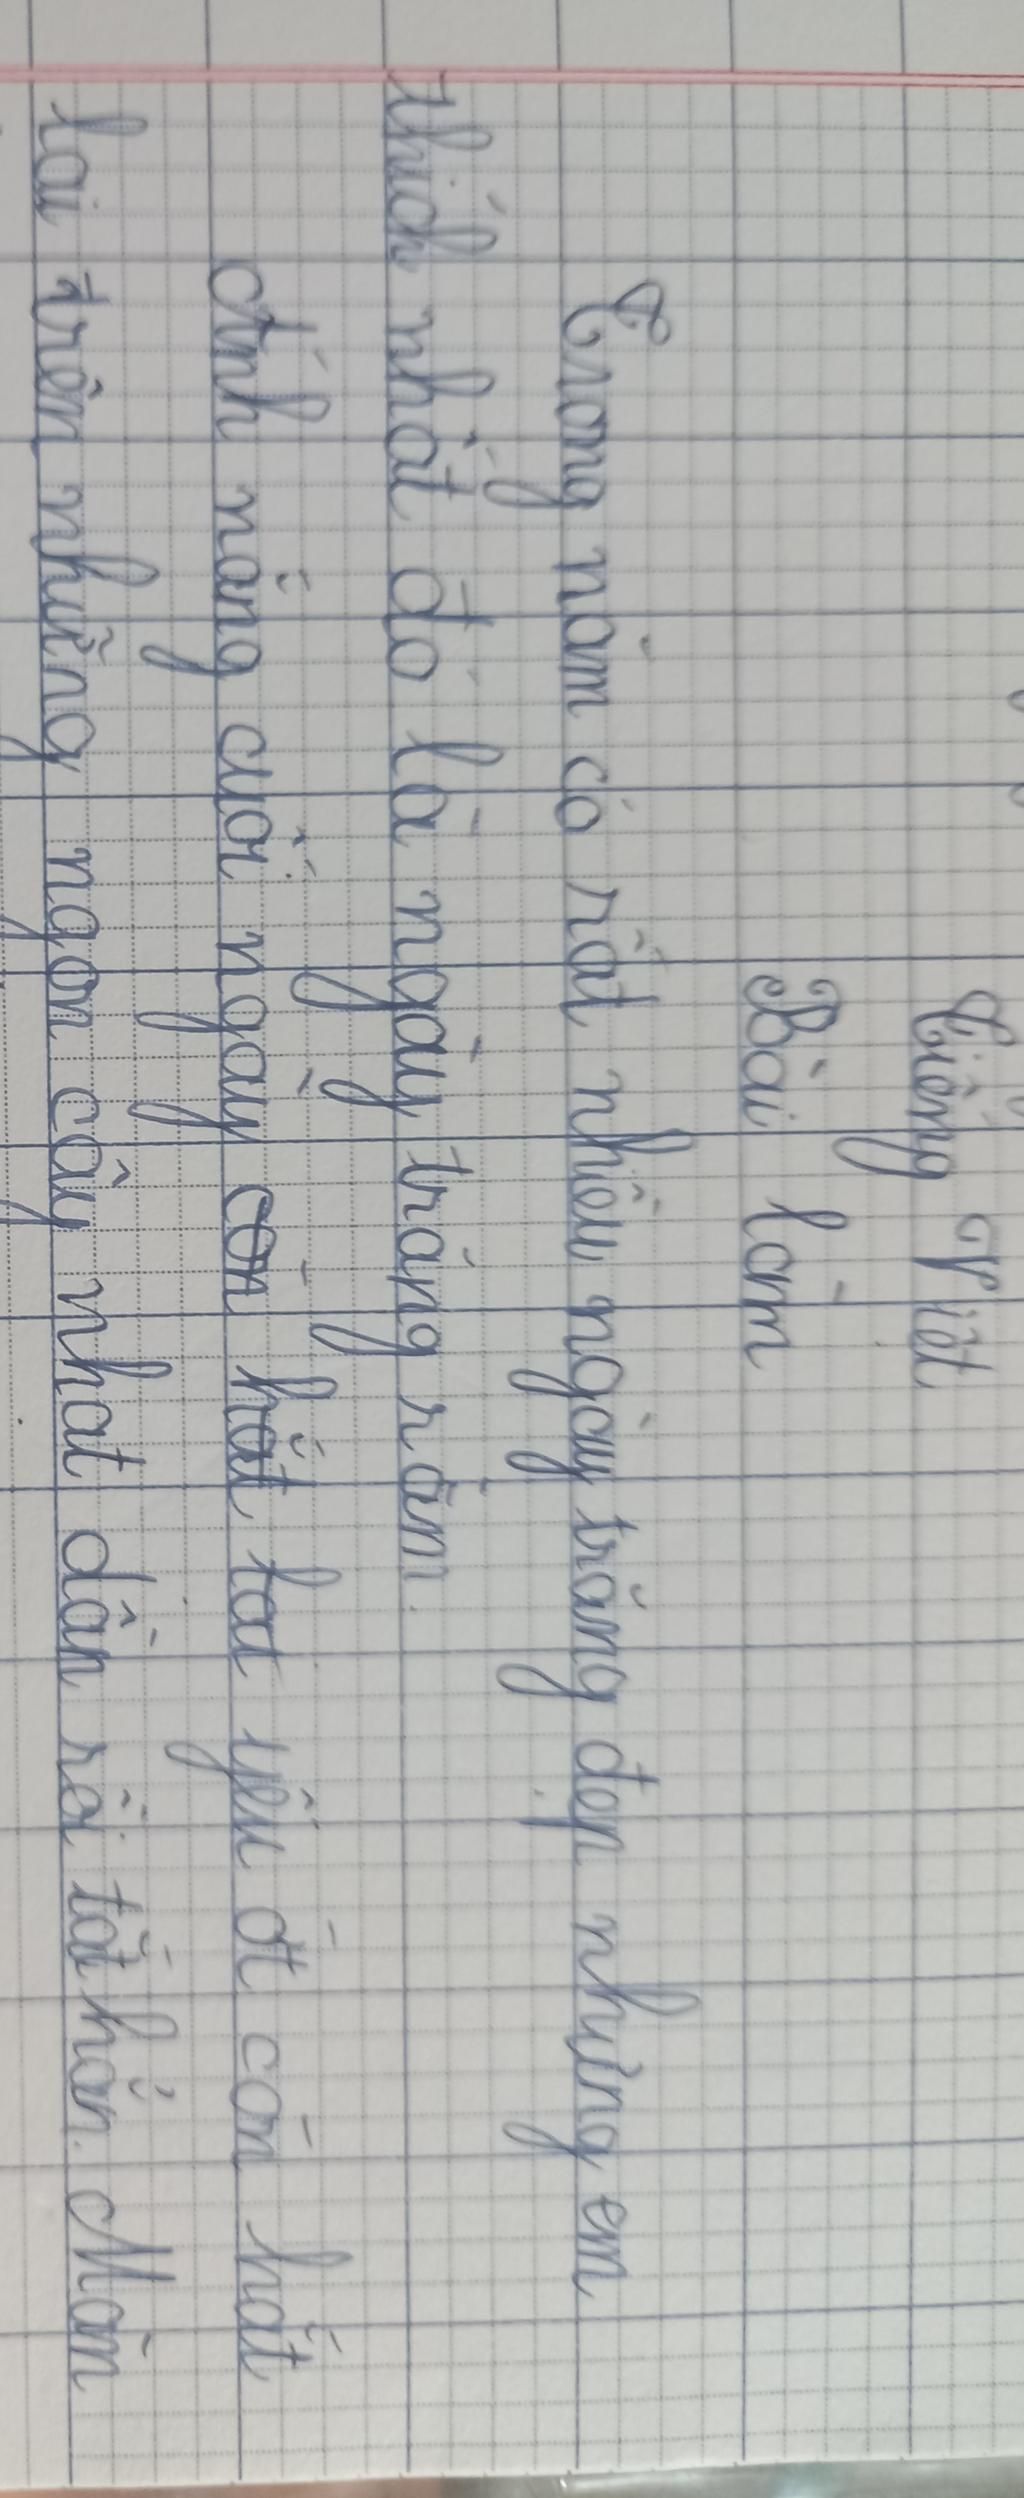 Tiếng Việt
Bài làm
Trong năm có rất nhiều ngày trăng đẹp nhưng em
thích nhất đó là ngày trăng rằm.
Ánh nắng cuối ngày còn hắt lai yếu ớt còn hắt
lai trên những ngọn cây nhạt dần rồi tắt hẳn. Màn